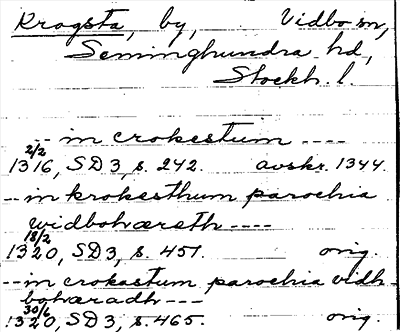 Krogsta, by, Vidbo sn,
Seminghundra hd,
Stockh. l.
-- in crokestum ----
2/2
1316, SD3, s. 242. avskr. 1344.
-- in krokesthum parochia
widbohæreth ----
18/2
1320, SD3, s. 451. orig.
-- in crokastum parochia vidh-
bohæradh ---
30/6
1320, SD3, s. 465. orig.